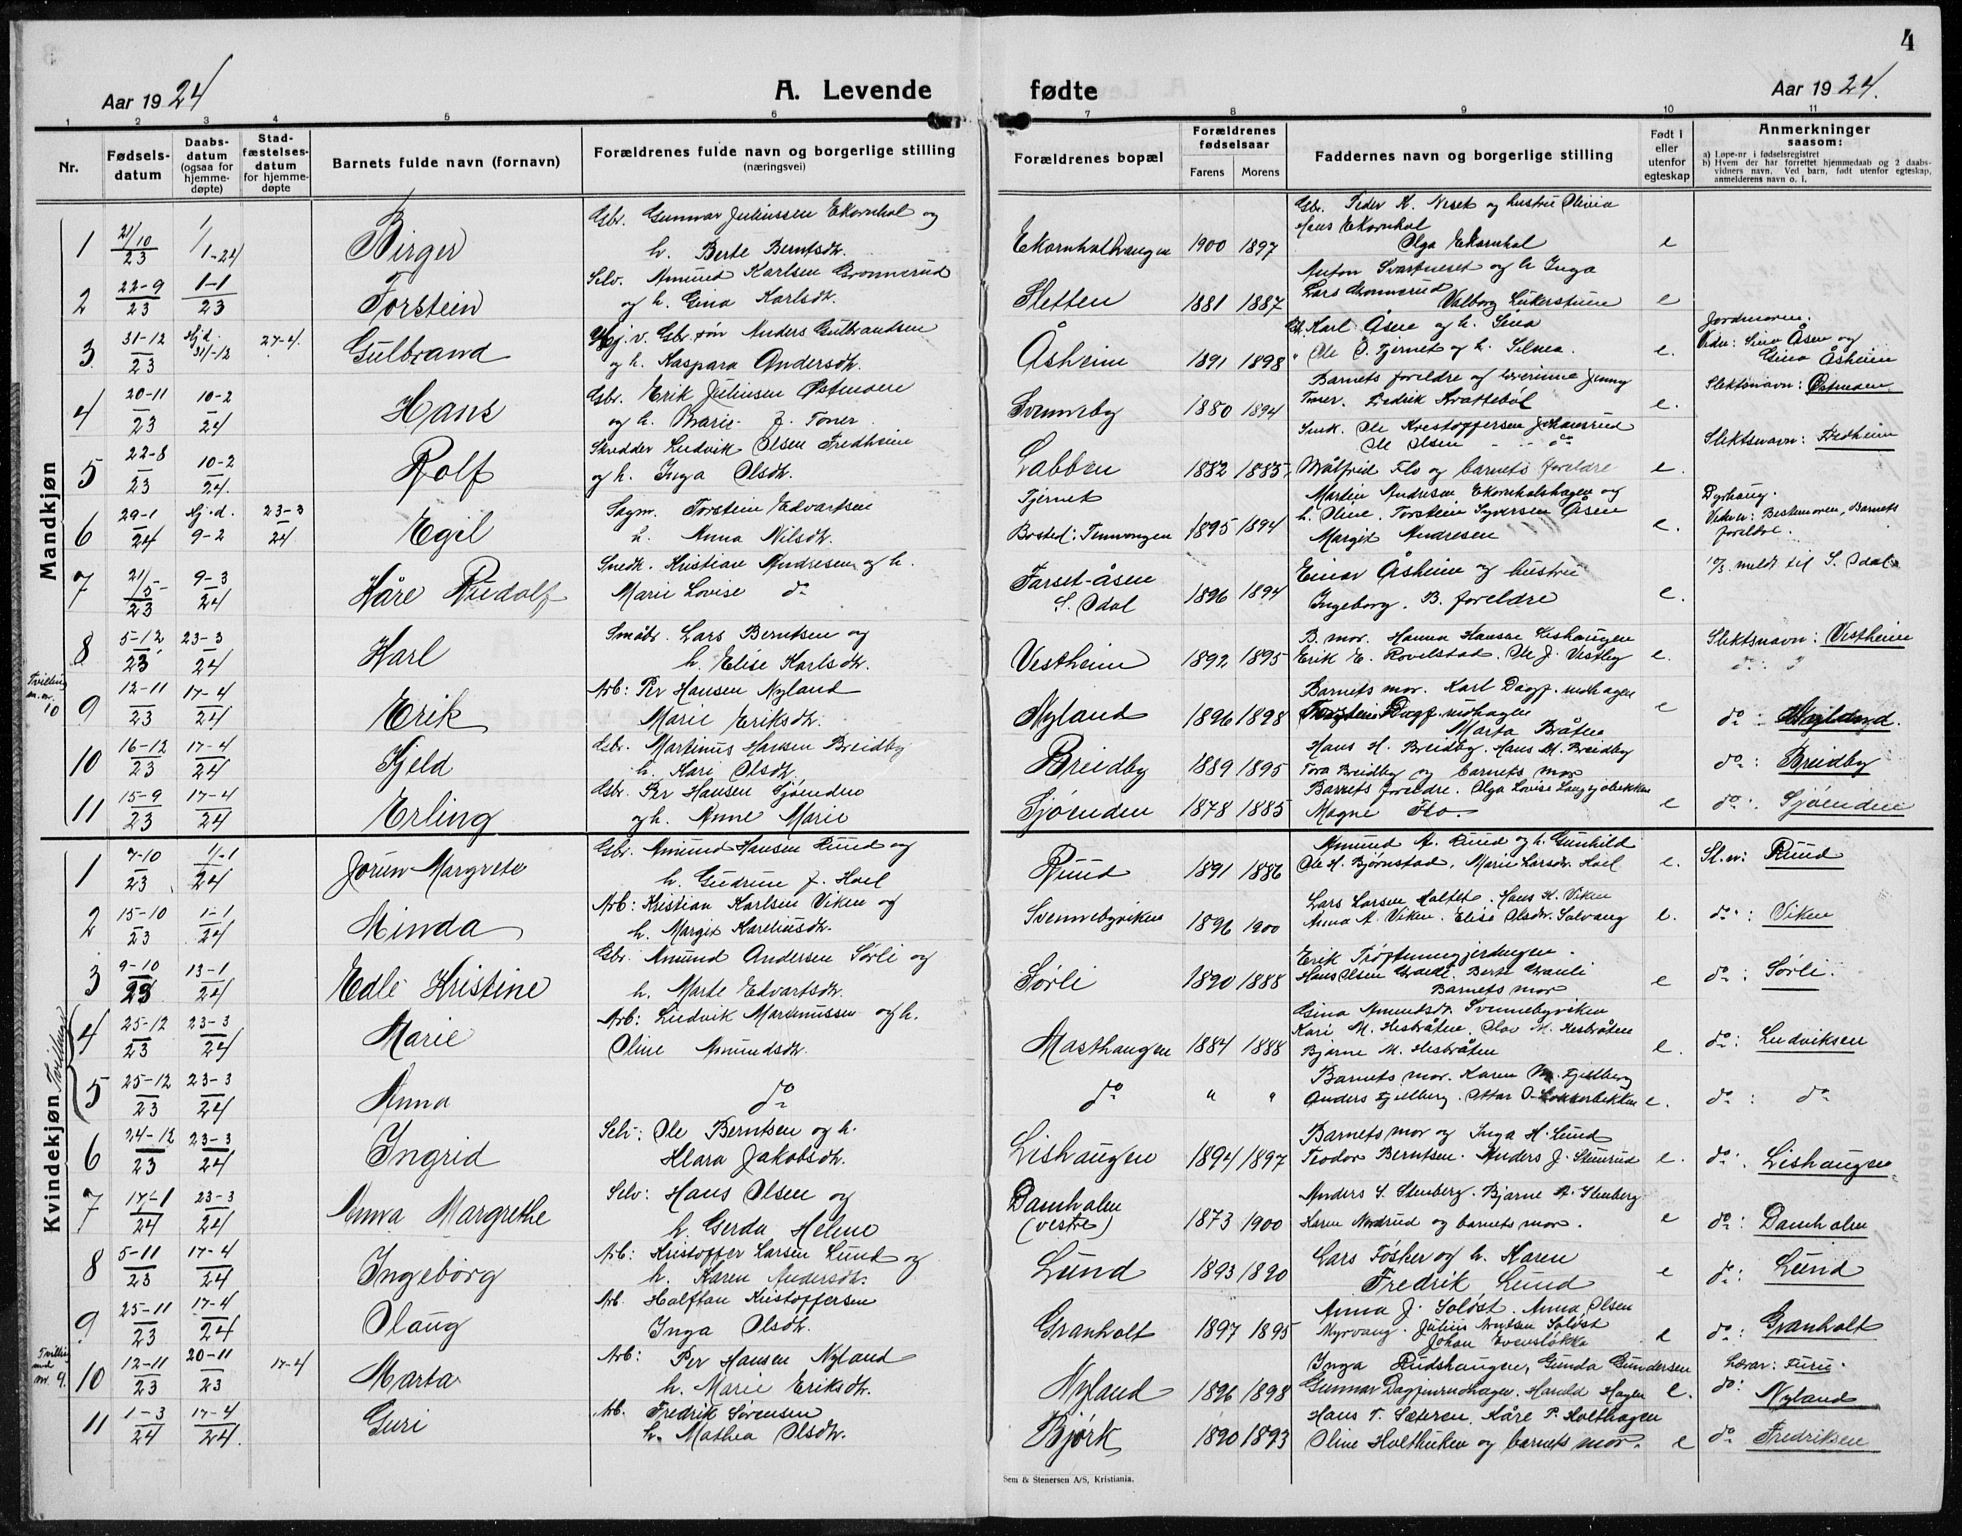 4
Aar 1924
A. Levende fødte
Aar 1924.
1 2 3 4 5 6 7 8 9 10 11
Nr.
Fødsels-datum
Daabs-datum (ogsaa for hjemme-døpte)
Stad-fæstelses-datum for hjemme-døpte
Barnets fulde navn (fornavn)
Forældrenes fulde navn og borgerlige stilling (næringsvei)
Forældrenes bopæl
Forældrenes fødselsaar
Farens Morens
Faddernes navn og borgerlige stilling
Født i eller utenfor egteskap
Anmerkninger saasom:
a) Løpe-nr i fødselsregistret
b) Hvem der har forrettet hjemmedaab og 2 daabs-vidners navn. Ved barn, født utenfor egteskap, anmelderens navn o. l.
Mandkjøn
1 21/10 23 1/1-24 Birger Gbr. Gunnar Juliussen Ekornhol og
h. Berte Berntsdtr. Ekornholhaugen 1900 1897
Gbr. Peder K. Neset og hustru Olivia
Hans Ekornhol
Olga Ekornhol e
2 22-9 23 1-1 23 Torstein Selv. Amund Karlsen
og h. Gina Karlsdtr. Sletten 1881 1887
Anton Svartneset og h. Inga
Lars Valborg e
3 31-12 23 Hj.d. 31-12 27-4 Gulbrand Gbr. søn Anders Gulbrandsen
og h. Kaspara Andersdtr. Åsheim 1891 1898
Karl Åsen og h. Sina
" Ole O. Tjernet og h. Silvia. e.
Jordmoren.
Vidn: Sina Åsen og
Gina Åsheim
4 20-11 23 10-2 24 Hans Gbr. Erik Juliusen Østmoen
og h. Marie J. Toner Svenneby 1880 1894
Barnets foreldre og Jenny
Toner. Fredrik Kvattebøl e.
Slektsnavn: Østmoen
5 22-8 23 10-2 24. Rolf Skredder Ludvik Olsen Fredheim
og h. Inga Olsdtr. Labben 1882 1885.
Smk. Ole Kristoffersen
Ole Olsen do
Valfrid Flo og barnets foreldre e.
Slektsnavn: Fredheim
6 29-1 24 Hj.d. 9-2 23-3 24 Egil Sagm. Torstein Edvartsen
h. Anna Nilsdtr. Tjernet
Bosted: Temvongen 1895 1894
Martin Andresen Ekornholshagen og
h. Oline. Torstein Syversen Åsen
Margit Andresen e.
Dyrhaug.
Vidner: Bestemoren, Barnets
foreldre.
7 21/5- 23 9-3 24 Kåre Rudolf Snedk. Kristian Andresen og h.
Marie Lovise do Farset-åsen
S. Odal 1896 1894
Einar Åsheim og hustru
Ingeborg. B. foreldre e.
10/3 meldt til S. Odal
8 5-12 23 23-3 24 Karl Småbr. Lars Berntsen og
h. Elise Karlsdtr. Vestheim 1892 1895
B. mor. Hanna Hansse Lishaugen
Erik E. Rovelstad. Ole J. Vestby e.
Slektsnavn: Vestheim
Tvilling m. nr. 10
9 12-11 23 17-4 24 Erik Arb: Per Hansen Nyland
Marie Eriksdtr. Nyland 1896 1898
Barnets mor. Karl Dagf. rudhagen
Torstein Dagf. rudhagen
Marta Bråten e
do: Nyland.
10 16-12 23 17-4 24 Kjeld Gbr. Martinus Hansen Breidby
h. Kari Olsdtr. Breidby 1889 1895
Hans H. Breidby. Hans M. Breidby
Tora Breidby og barnets mor
do: Breidby
11 15-9 23 17-4 24 Erling Gbr. Per Hansen Sjøenden
og h. Anne Marie Sjøenden 1878 1885
Barnets foreldre. Olga Lovise Langsjøbekken
Magne Flo. e
do: Sjøenden
Kvindekjøn.
1 7-10 23 1-1 24 Jorun Margrete Gbr. Amund Hansen Ruud og
h. Gudrun J. Hoel Ruud 1891 1886
Amund A. Ruud og h. Gunhild
Ole H. Bjørnstad, Marie Larsdr. Hoel e.
Sl.n: Ruud
2 15-10 23 1-1 24 Minda Arb: Kristian Karlsen Viken og
h. Margit Kareliusdtr. Svennebyviken 1896 1900
Lars Larsen Hans K. Viken
Anna A. Viken. Elise Olsdtr. Solvang e.
do: Viken
3 9-10 23 13-1 24 Edle Kristine Gbr. Amund Andersen Sørli og
h. Marte Edvartsdtr. Sørli 1890 1888
Erik
Hans Olsen Berte
Barnets mor e
do: Sørli.
Tvillinger
4 25-12 23 23-3 24 Marie Arb: Ludvik Martinussen og h.
Oline Amundsdtr. Masthaugen 1884 1888
Gina Amundsdtr. Svennebyviken
Kari M. Hesbråten. Olav M. Hesbråten
Bjarne M. Hesbråten e.
do: Ludviksen
5 25-12 23 23-3 24 Anna do do " "
Barnets mor. Karen M. Fjellberg
Anders Fjellberg. Ottar O. Løkkerbekken e.
do: do
6 24-12 23 23-3 24 Ingrid Selv: Ole Berntsen og h.
Klara Jakobsdtr. Lishaugen 1894 1897
Barnets mor og Inga H. Lund
Teodor Berntsen. Anders J. Stenrud e.
do: Lishaugen
7 17-1 24 23-3 24 Anna Margrethe Selv: Hans Olsen og
h. Gerda Helene Damholen
(vestre) 1873 1900
Anders S. Stenberg. Bjarne A. Stenberg
Karen Nordrud og barnets mor. e
do: Damholen
8 5-11 23 17-4 24 Ingeborg Arb: Kristoffer Larsen Lund og
h. Karen Andersdtr. Lund 1893 1890
Lars Fosker og h. Karen
Fredrik Lund e
do: Lund
9 25-11 23 17-4 24 Olaug Arb. Halftan Kristoffersen
Inga Olsdtr. Granholt 1897 1895
Anna J. Soløst. Anna Olsen
Myrvang. Julius Soløst
Johan Evensløkka e
do: Granholt
Tvilling med nr. 9.
10 12-11 23 20-11 23 17-4 Marta Arb: Per Hansen Nyland
h. Marie Eriksdtr. Nyland 1896 1898
Inga Rudshaugen, Gunda Gundersen
Gunnar Dagfinrudhagen. Harald Hagen e.
Lærar: Furu.
do: Nyland
11 1-3 24 17-4 24. Guri Arb. Fredrik Sørensen
h. Mathea Olsdtr. Bjørk 1890 1893
Hans T. Sæteren, Kåre P. Holthagen
Oline og barnets mor. e
do Fredriksen
Sem & Stenersen A/S, Kristiania.